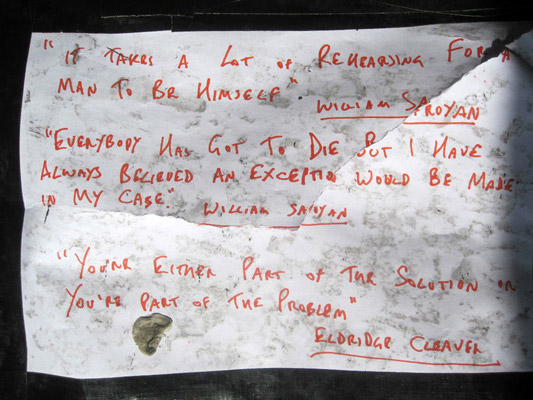 "IT TAKES A LOT OF REHEARSING FOR A
MAN TO BE HIMSELF"
WILLIAM SAROYAN
"EVERYBODY HAS GOT TO DIE BUT I HAVE
ALWAYS BELIEVED AN EXCEPTIO WOULD BE MADE
IN MY CASE."
WILLIAM SAROYAN
"YOU'RE EITHER PART OF THE SOLUTION OR
YOU'RE PART OF THE PROBLEM"
ELDRIDGE CLEAVER